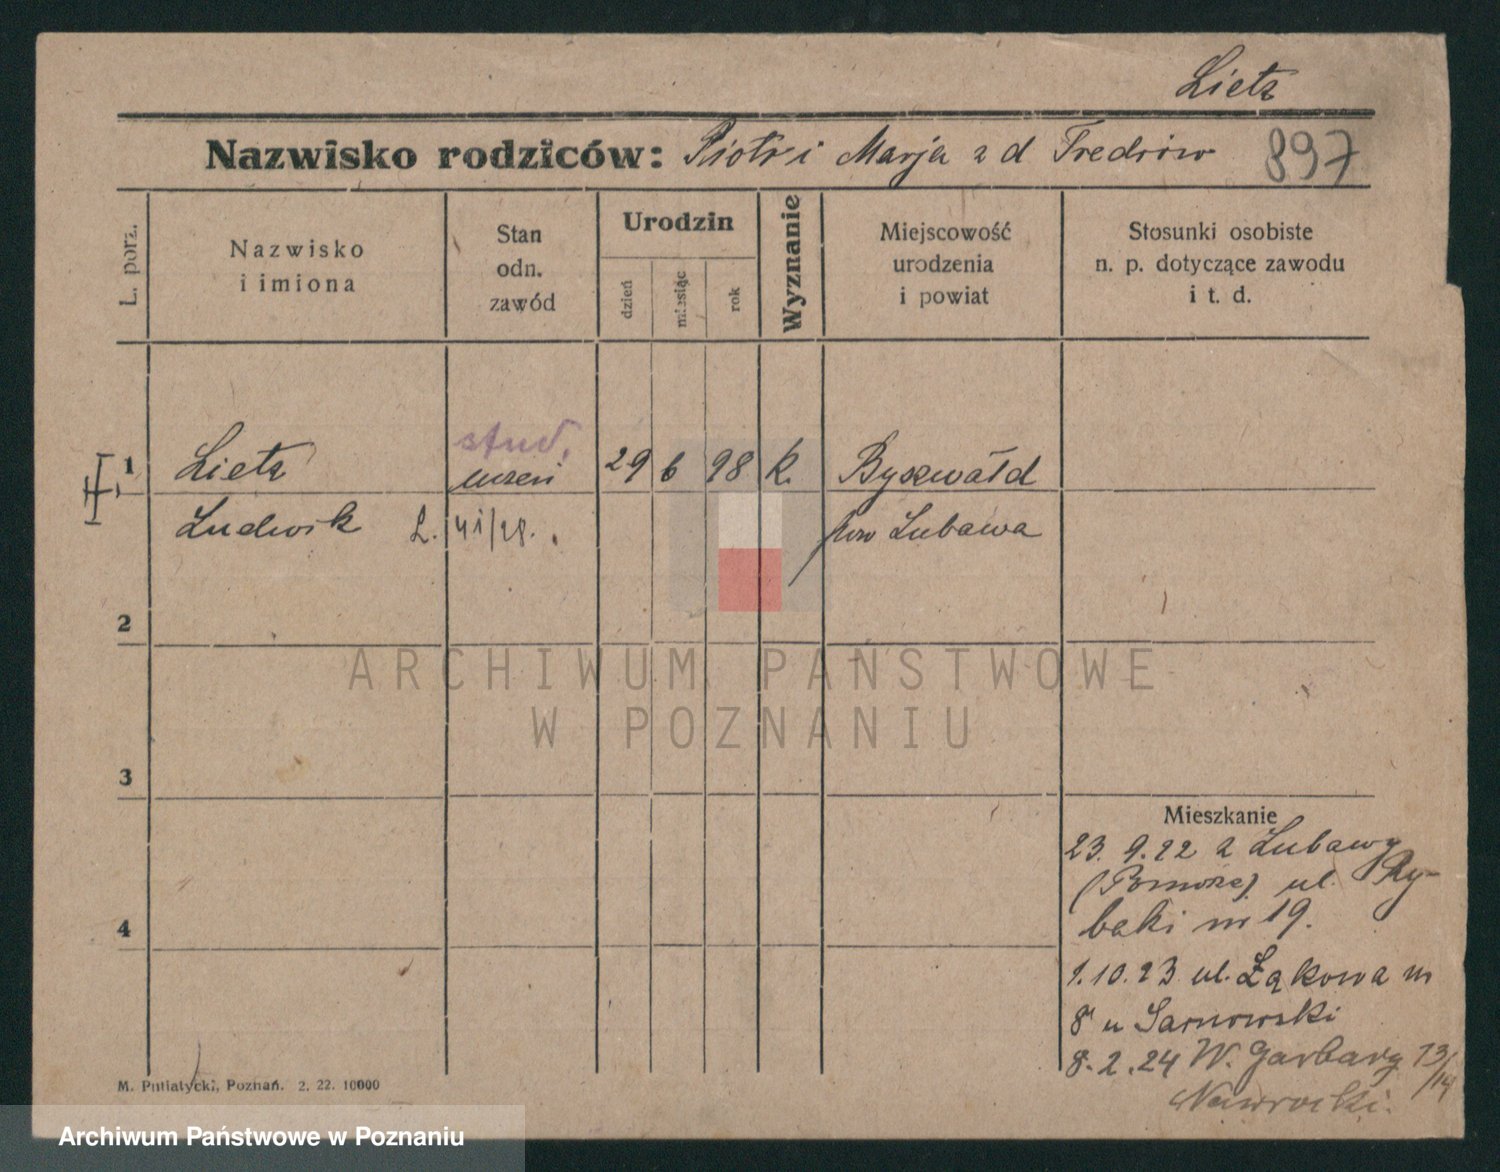 Lietz
Nazwisko rodziców: Piotr i Marja z d Fredrów 897
L. porz.
Nazwisko
i imiona
Stan
odn.
zawód
Urodzin
dzień
miesiąc
rok
Wyznanie
Miejscowość
urodzenia
i powiat
Stosunki osobiste
n. p. dotyczące zawodu
i t. d.
stud.
1 Lietz uczeń 29 6 98 k. Byszwałd
Ludwik pow Lubawa
2
ARCHIWUM PAŃSTWOWE
W POZNANIU
3
Mieszkanie
23. 9. 22 z Lubawy
(Pomorze) ul. Ry-
4
baki nr 19.
1. 10. 23 ul. Łąkowa nr
8 u Sarnowski
8. 2. 24 W. Garbary 13/14
Nawrocki.
M. Putiatycki, Poznań. 2. 22. 10000
Archiwum Państwowe w Poznaniu